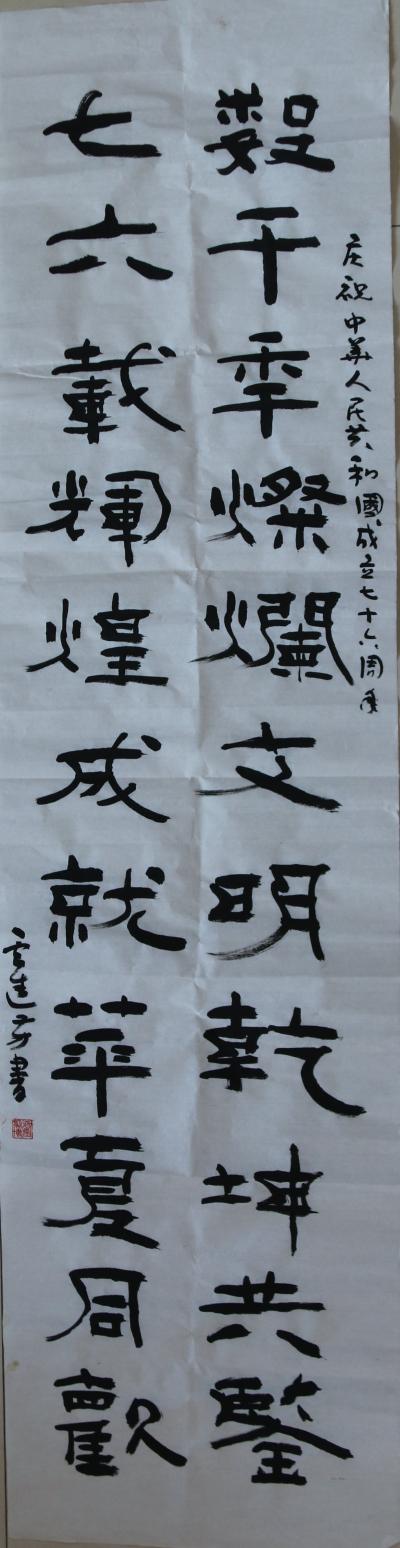 庆祝中華人民共和國成立七十六周年
數千年燦爛文明乾坤共鑒
七六載輝煌成就華夏同歡
進方書